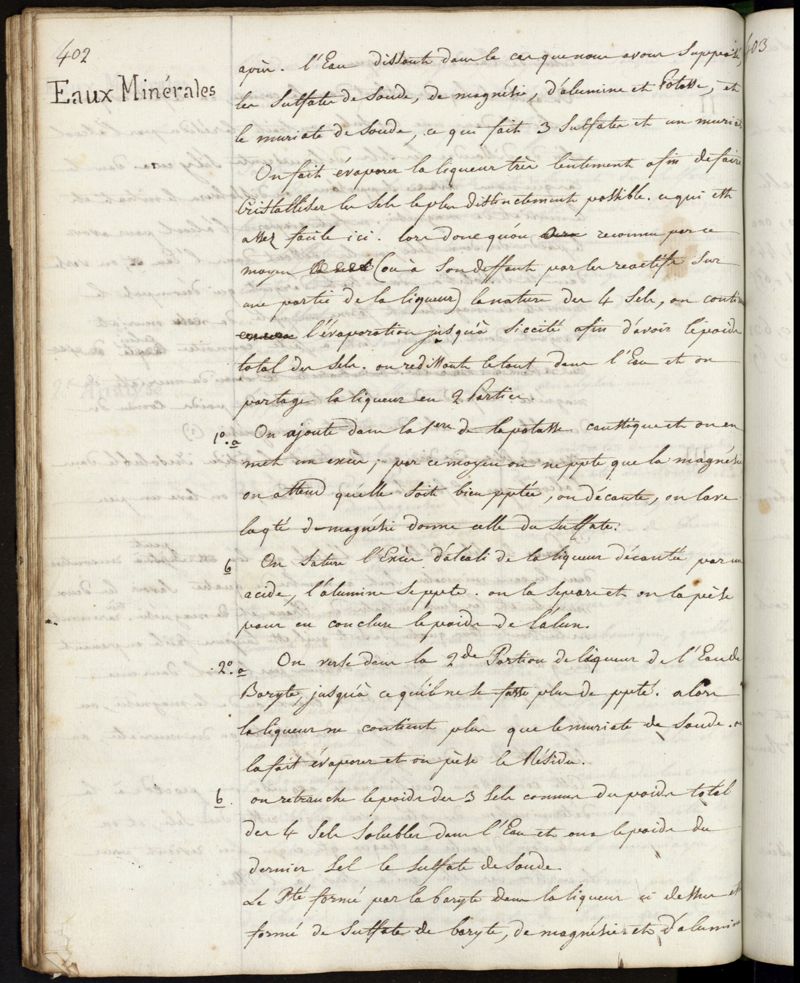 402
403
Eaux Minérales
après. l'Eau dissoute dans le cas que nous avons Supposé
les Sulfates de Soude, de magnésie, d'alumine et Potasse, et
le muriate de Soude, ce qui fait 3 Sulfates et un muria
On fait évaporer la liqueur très lentement afin de faire
Cristalliser les Sels le plus distinctement possible. ce qui est
assez facile ici. lors donc qu'on reconnu par ce
moyen (ou à Son deffaut par les reactifs Sur
une partie de la liqueur) la nature des 4 Sels, on conti
l'évaporation jusqu'à siccité afin d'avoir le poids
total des Sels. on redissout le tout dans l'Eau et on
partage la liqueur en 2 Parties.
1º. a On ajoute dans la 1ere de la potasse caustique et on en
met un excès, par ce moyen on ne ppte que la magnésie
on attend qu'elle soit bien pptée, on décante, on lave
la qté de magnésie donne celle du Sulfate.
b On Sature l'Excès d'alcali de la liqueur décantée par un
acide, l'alumine se ppte. on la Separe et on la pèse
pour en conclure le poids de l'alun.
2º. a On verse dans la 2de Portion de liqueur de l'Eau de
Baryte, jusqu'à ce qu'il ne se fasse plus de ppté. alors
la liqueur ne contient plus que le muriate de Soude. on
la fait évaporer et on pèse le Résidu.
b. on retranche le poids des 3 Sels connus du poids total
des 4 Sels Solubles dans l'Eau et on a le poids du
dernier Sel le Sulfate de Soude
Le Pté formé par la baryte dans la liqueur ci dessus est
formé de Sulfate de baryte, de magnésie et d'alumine